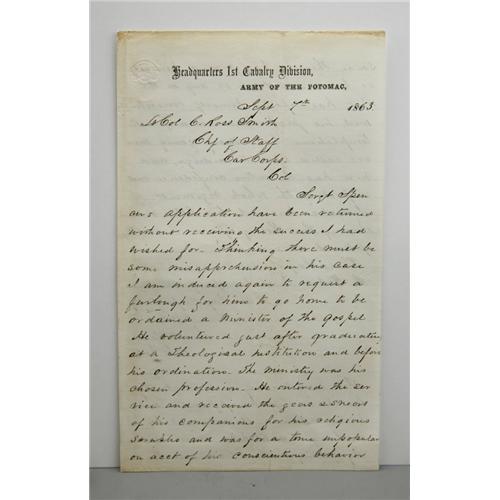 Headquarters 1st Cavalry Division,
ARMY OF THE POTOMAC,
Sept 7th 1863
Lt Col C. Ross Smith
Chf of Staff
Cav Corps.
Col
Sergt Spen
cers application have been returned
without receiving the success I had
wished for. Thinking there must be
some misapprehension in his case
I am induced again to request a
furlough for him to go home to be
ordained a Minister of the Gospel
He volunteered just after graduating
at a Theological institution and before
his ordination. The ministry was his
chosen profession. He entered the ser
vice and received the jeers & sneers
of his companions for his religious
and was for a time unpopular
on acct of his conscientious behavior